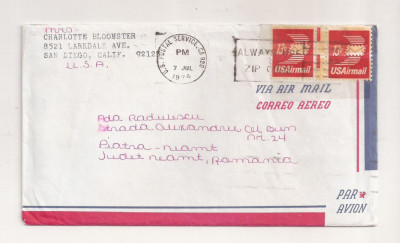 MRS
CHARLOTTE BLOOMSTER
8521 LARKDALE AVE.
SAN DIEGO, CALIF. 92123
U.S.A.
U.S. POSTAL SERVICE, CA
PM
7 JUL
1974
ALWAYS USE
ZIP CODE
13¢
USAirmail
13¢
USAirmail
VIA AIR MAIL
CORREO AEREO
Ada Radulescu
Strada Alexandru Cel Bun
Nr. 24
Piatra-Neamt
Judet Neamt, Romania
PAR
AVION